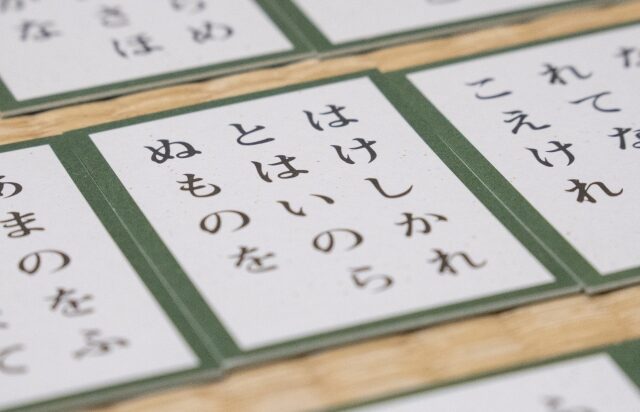 らめ
さほ
かな
な
れてな
こえけれ
はけしかれ
とはいのら
ぬものを
あまのをふ
て